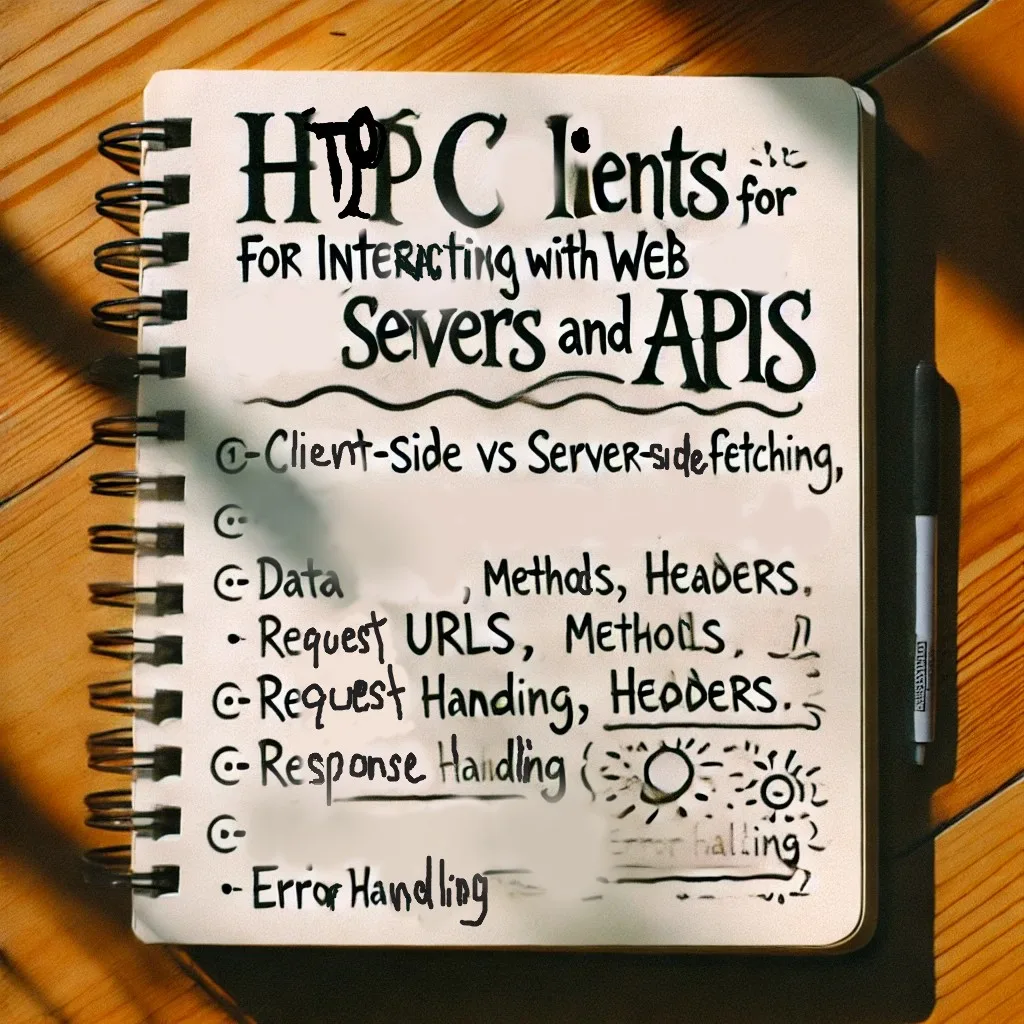 C lients for
FOR INTERACTING WITH WEB
Servers and APIS
1-Client-Side vs Server-side fetching,
Data , Methods, HEADERS.
• Request URLS, Methods.
Request Handing, HEDDERS.
Response Handling
• Error Handling